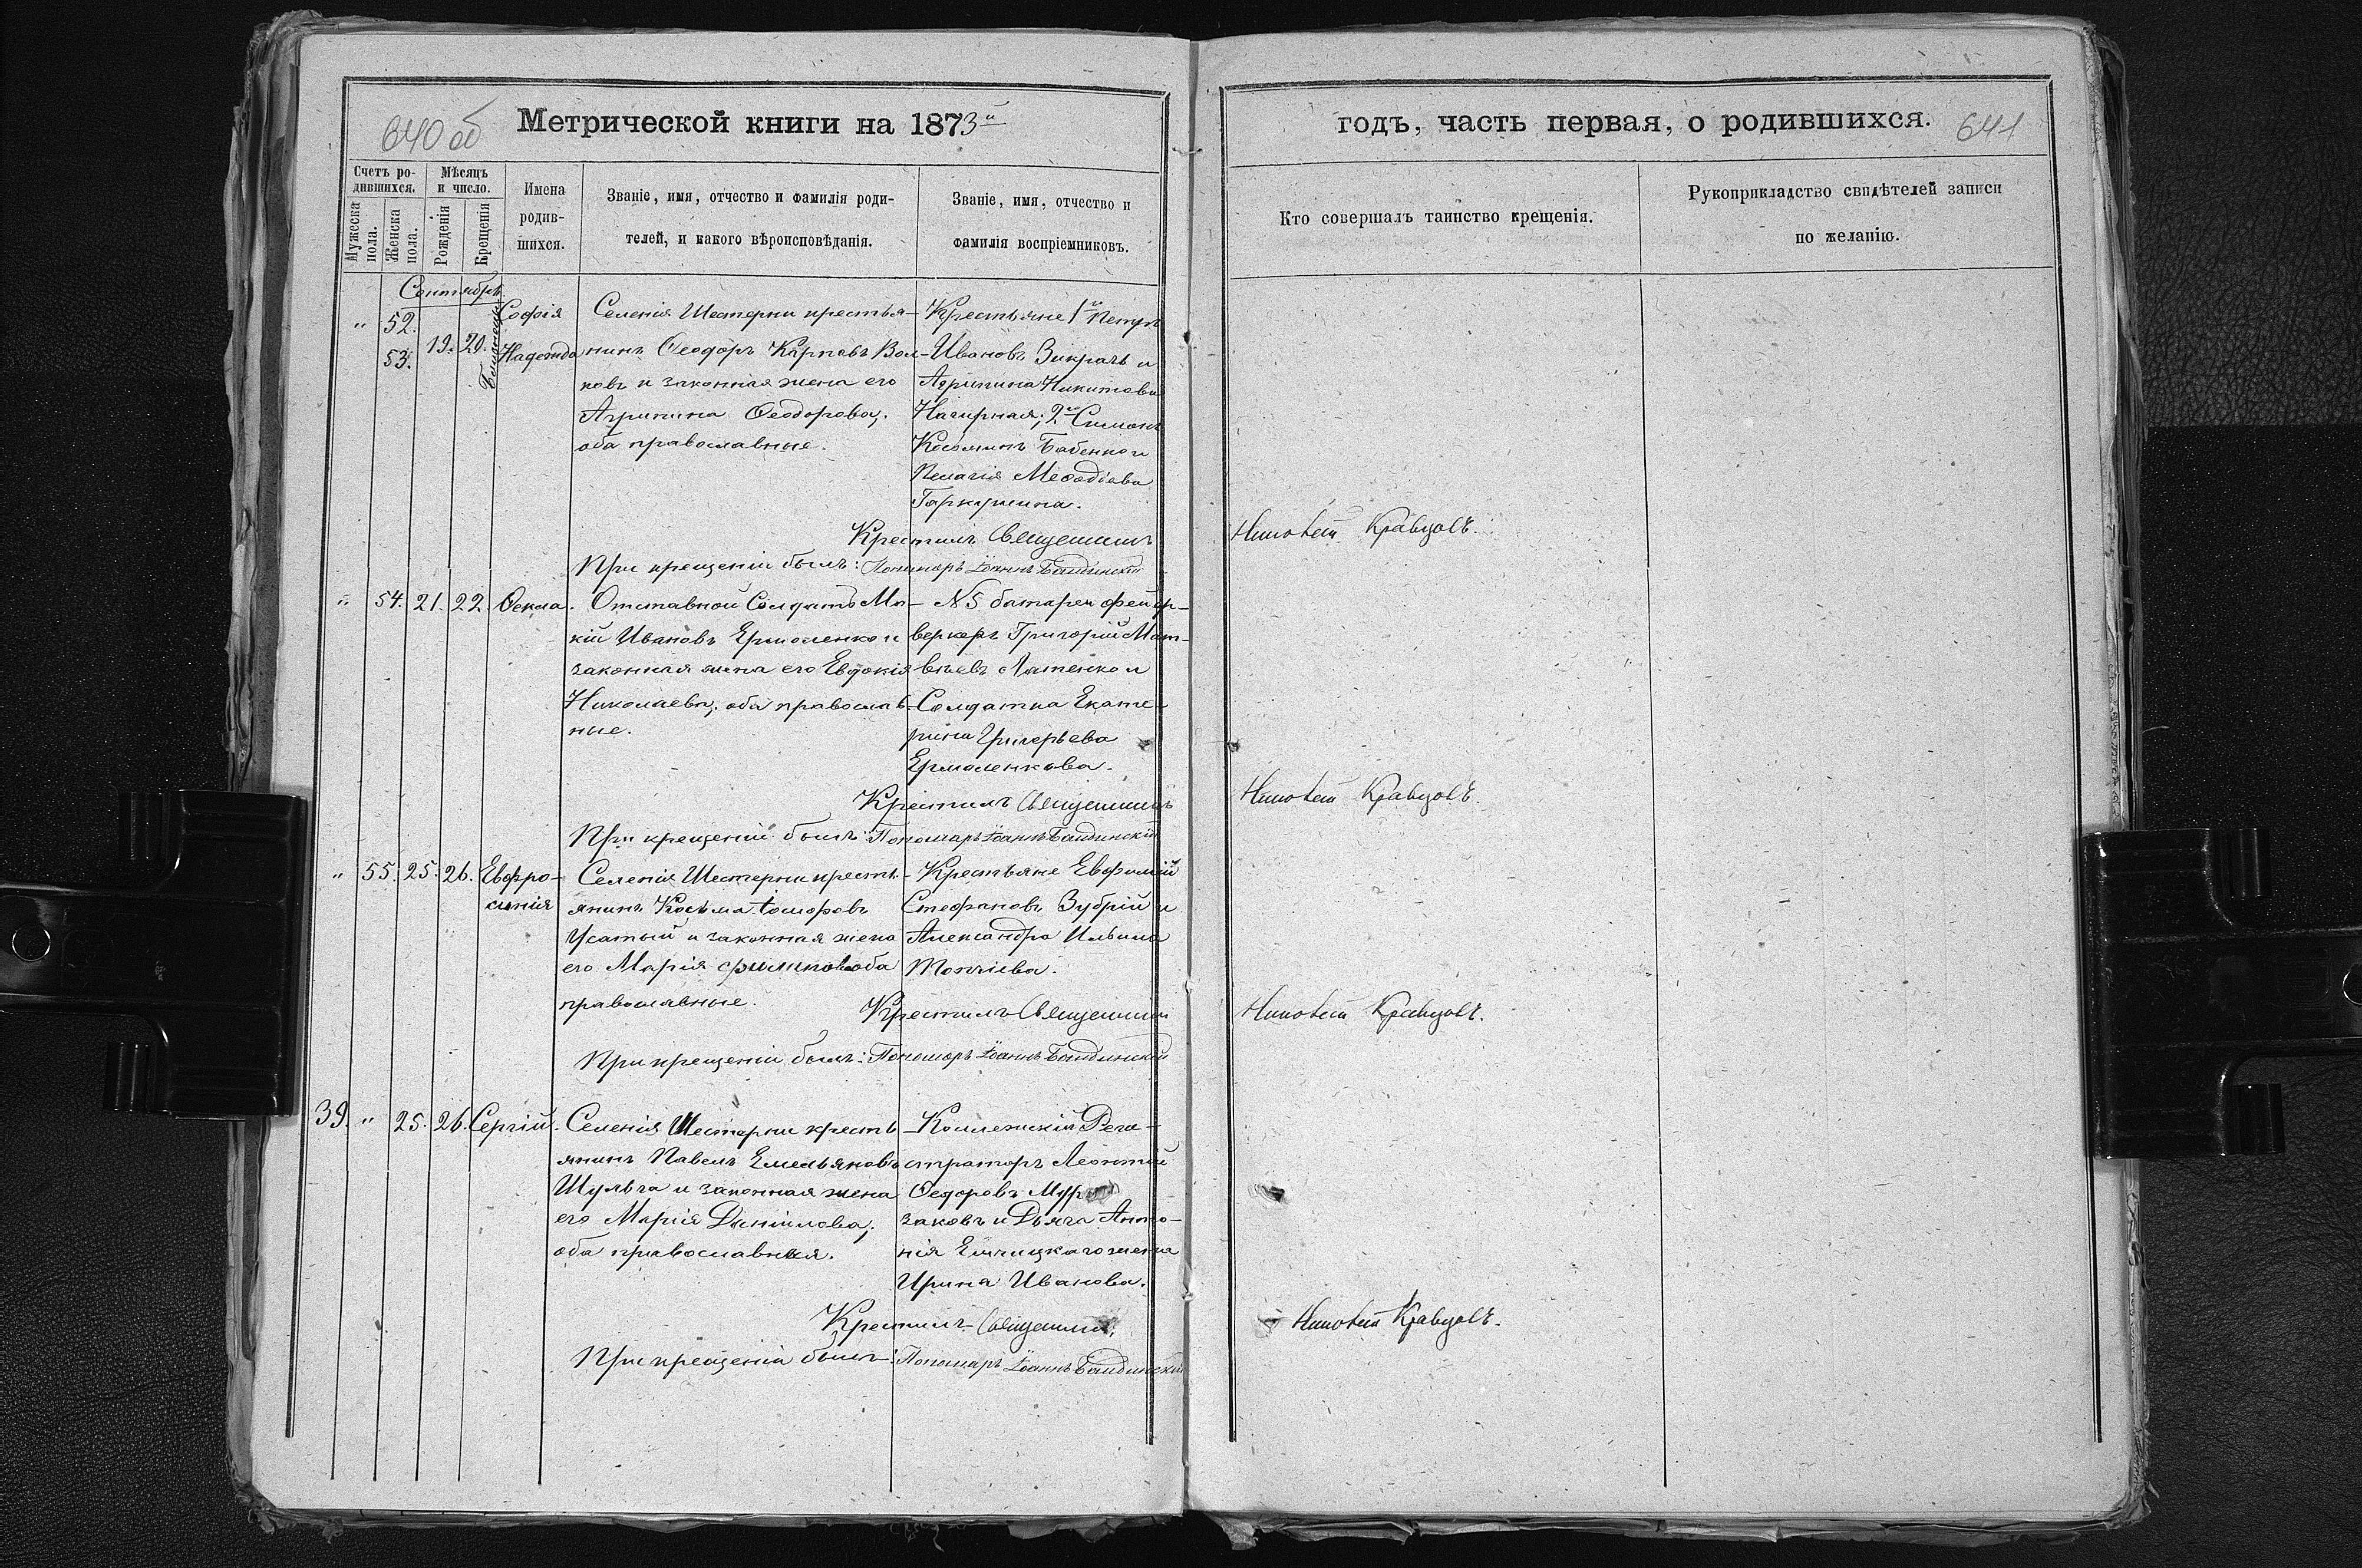 640 об
Метрической книги на 1873й
годъ, часть первая, о родившихся.
641
Счетъ ро-
дившихся.
Мужеска
пола.
Женска
пола.
Мѣсяцъ
и число.
Рожденія
Крещенія
Имена
родив-
шихся.
Званіе, имя, отчество и фамилія роди-
телей, и какого вѣроисповѣданія.
Званіе, имя, отчество и
фамилія воспріемниковъ.
Кто совершалъ таинство крещенія.
Рукоприкладство свидѣтелей записи
по желанію.
Сентябрь
" 52.
53.
19. 20.
Близнецы
Софія
Надежда
Селенія Шестерни крестья-
нинъ Ѳеодоръ Карповъ Вол-
ковъ и законная жена его
Агрипина Ѳеодорова;
оба православные.
Крестьяне 1й Петръ
Ивановъ Зикрачъ и
Агрипина Никитова
Нагирная; 2й Симонъ
Косминъ Бабенко и
Пелагія Меѳодіева
Гаркушина.
Крестилъ Священникъ
Кравцовъ.
При крещеніи былъ: Пономарь Іоаннъ
" 54. 21. 22. Ѳекла.
Отставной Солдатъ Мо-
кій Ивановъ Ермоленко и
законная жена его Евдокія
Николаева; оба православ-
ные.
№ 5 батареи фейер-
веркеръ Григорій Мат-
вѣевъ Лятенко и
Солдатка Екате-
рина Григорьева
Ермоленкова.
Крестилъ Священникъ
Кравцовъ.
При крещеніи былъ: Пономарь Іоаннъ
" 55. 25. 26. Евфро-
синія
Селенія Шестерни кресть-
янинъ Косьма
Усатый и законная жена
его Марія оба
православные.
Крестьяне Евфимій
Стефановъ Зубрій и
Александра Ильина
Топчіева.
Крестилъ Священникъ
Кравцовъ.
При крещеніи былъ: Пономарь Іоаннъ
39. " 25. 26. Сергій.
Селенія Шестерни кресть
янинъ Павелъ Емельяновъ
Шульга и законная жена
его Марія Даніилова;
оба православныя.
Коллежскій Реги-
страторъ Леонтій
Ѳедоровъ Мур
заковъ и Дьяка Анто-
нія жена
Ирина Иванова.
Крестилъ Священникъ
Кравцовъ.
При крещеніи былъ: Пономарь Іоаннъ